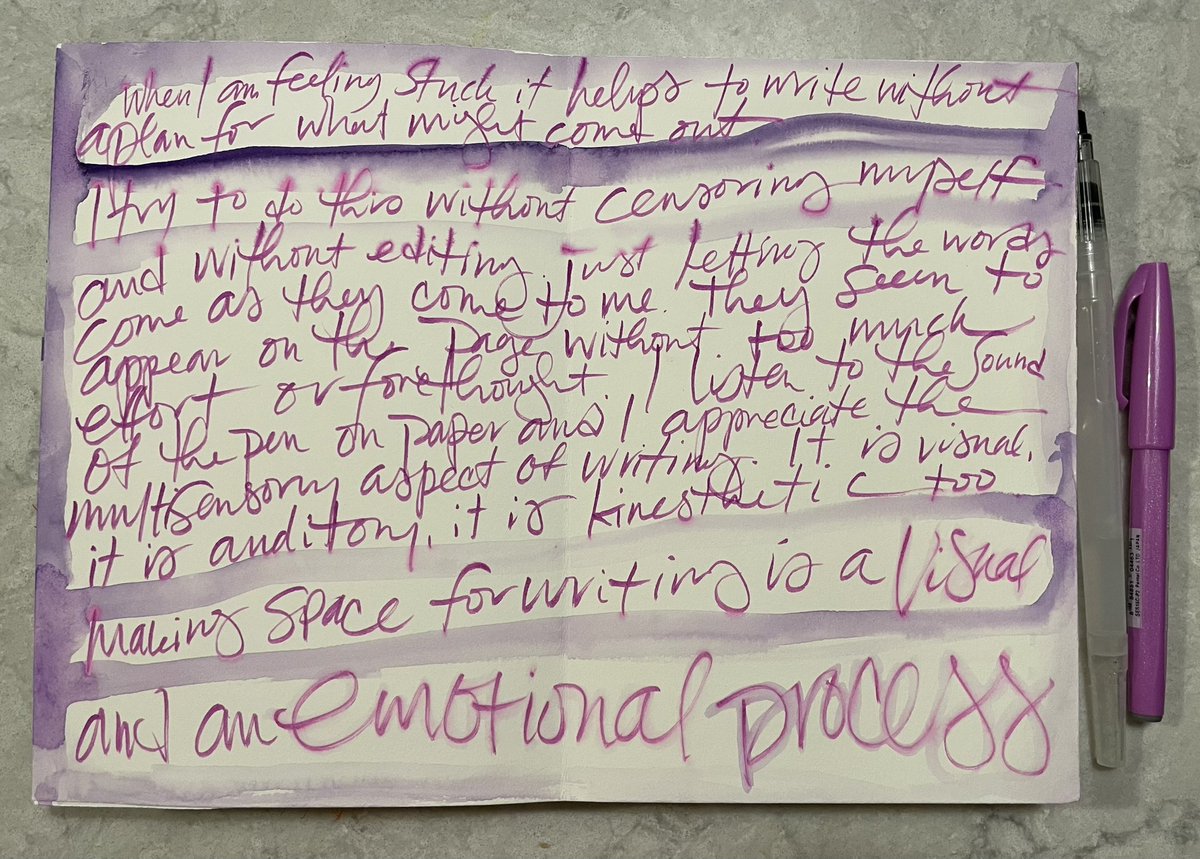 When I am feeling stuck it helps to write without
a plan for what might come out.
I try to do this without censoring myself
and without editing. Just letting the words
come as they come to me. They seem to
appear on the page without too much
effort or forethought. I listen to the sound
of the pen on paper and I appreciate the
multisensory aspect of writing. It is visual,
it is auditory, it is kinesthetic too
making space for writing is a visual
and an emotional process